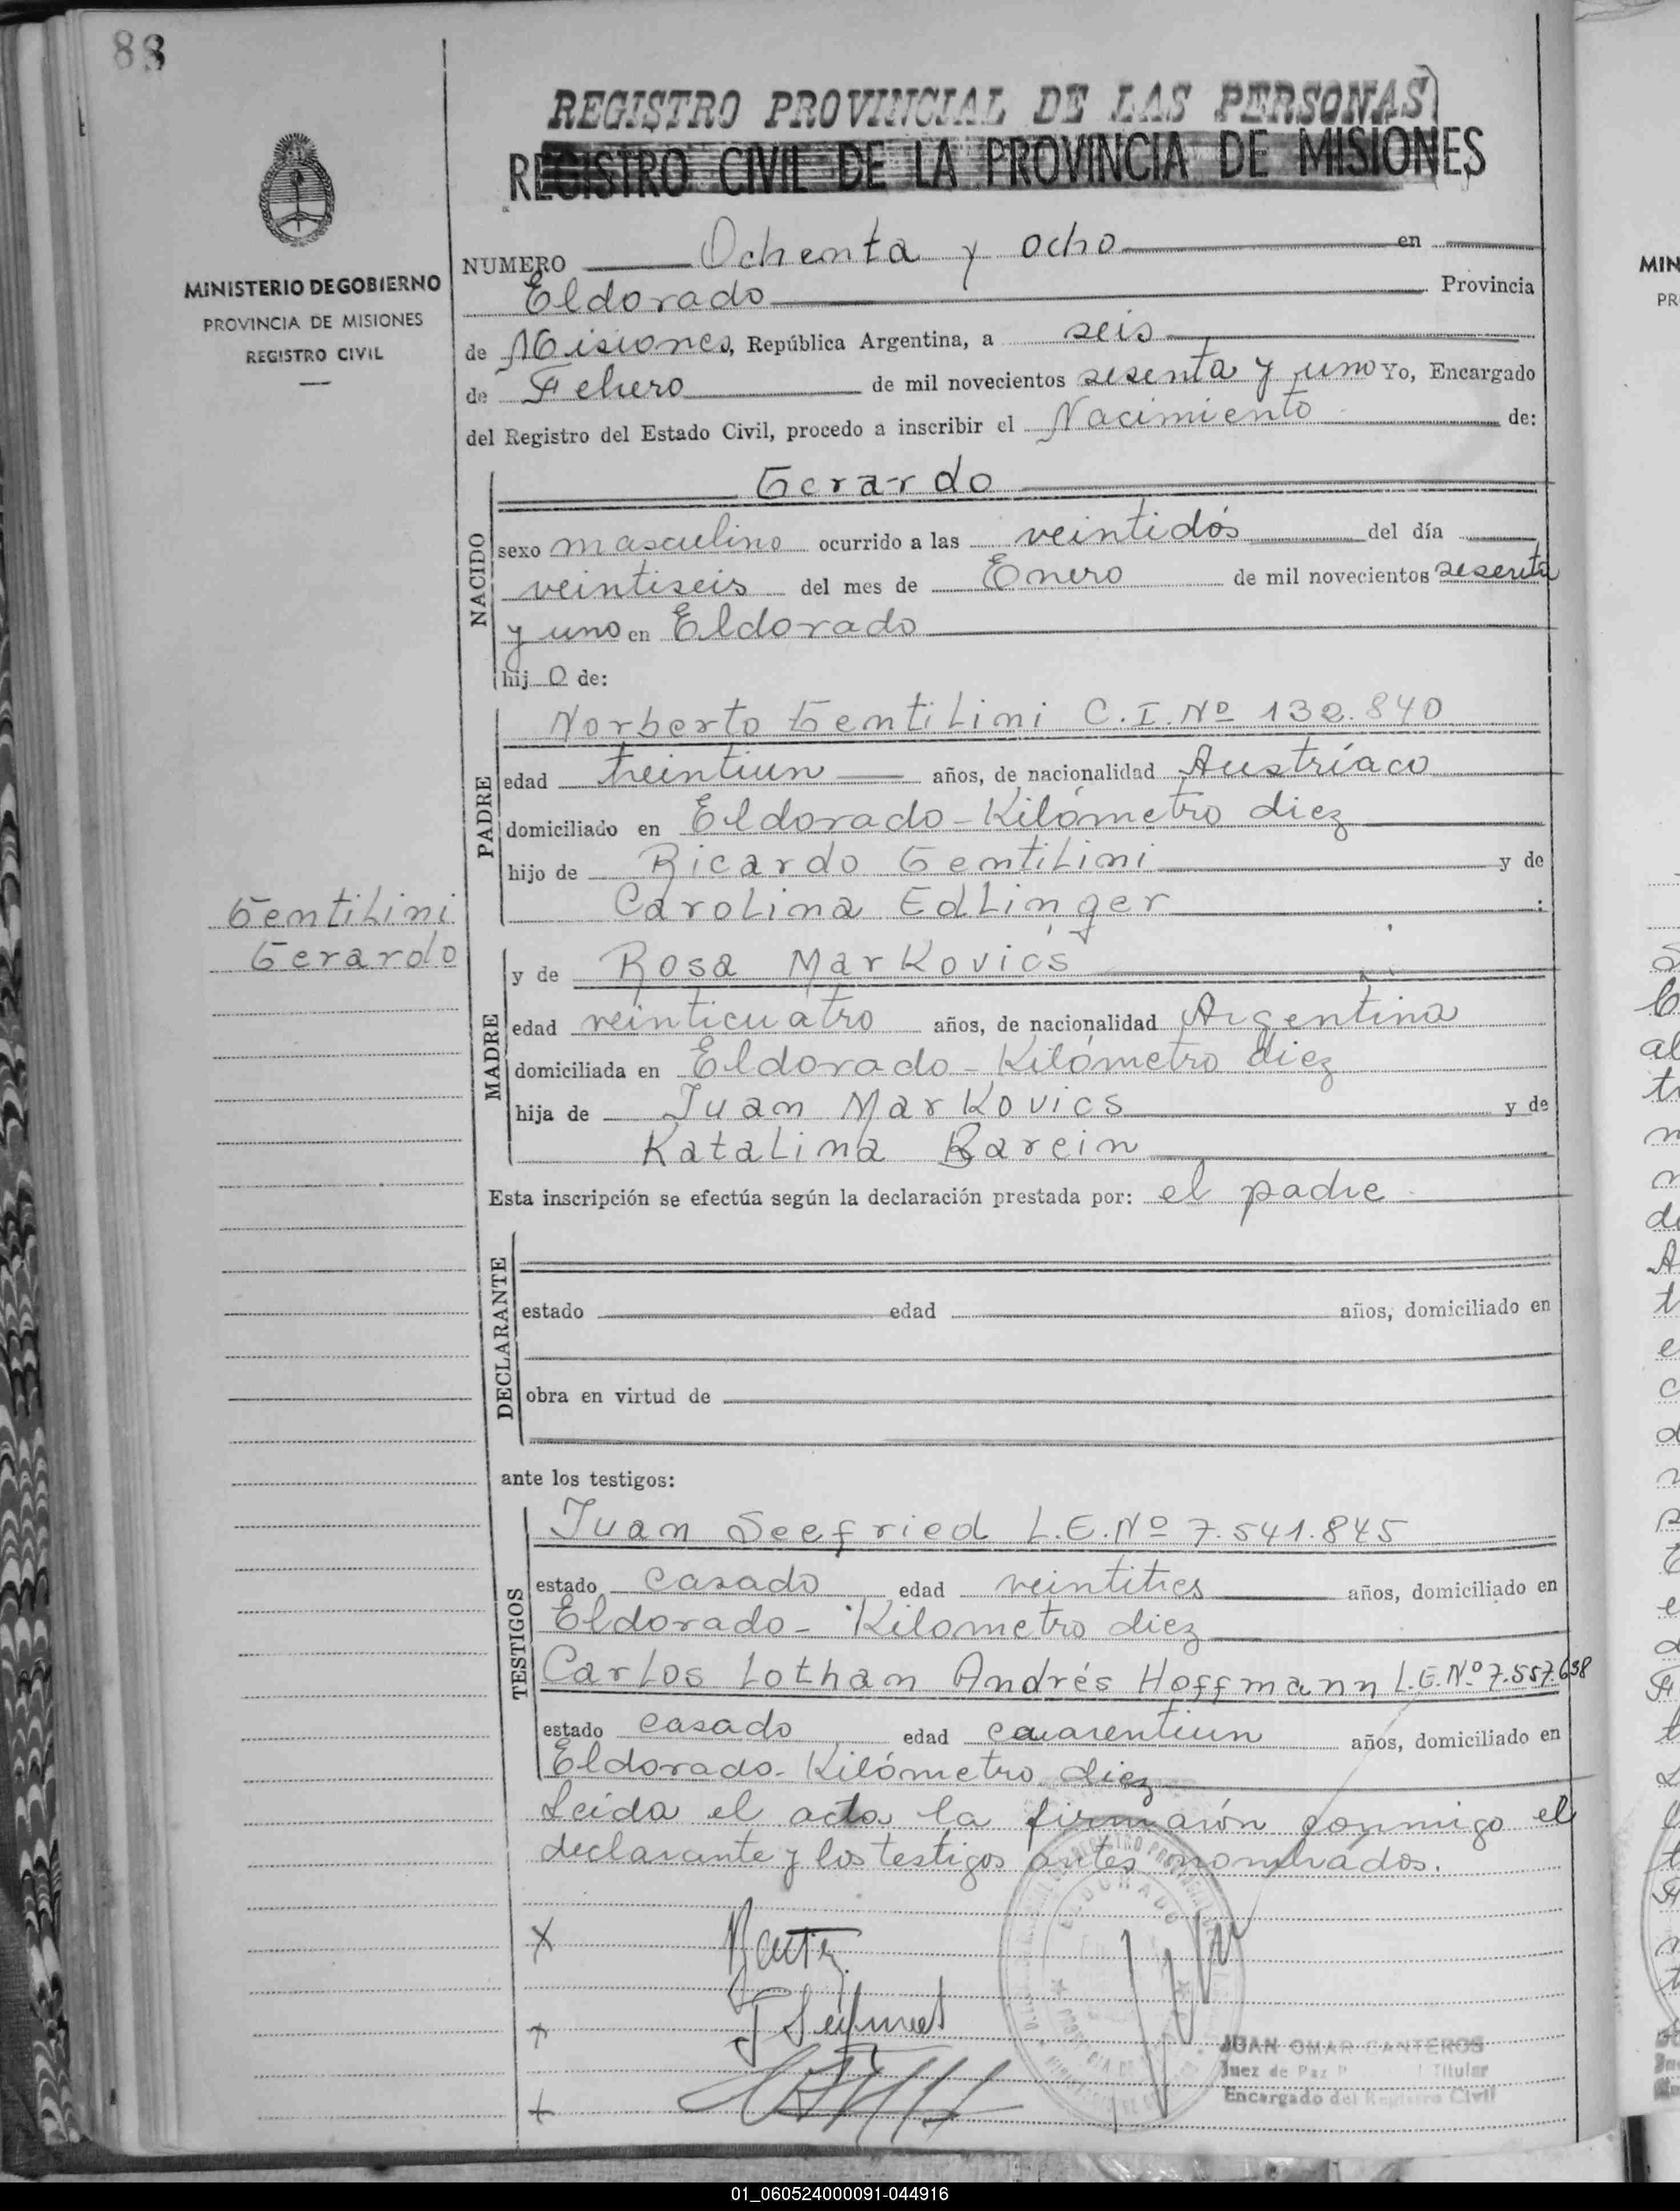 88
REGISTRO PROVINCIAL DE LAS PERSONAS
REGISTRO CIVIL DE LA PROVINCIA DE MISIONES
MINISTERIO DE GOBIERNO
PROVINCIA DE MISIONES
REGISTRO CIVIL
NUMERO Ochenta y ocho en
Eldorado Provincia
de Misiones, República Argentina, a seis
de Febrero de mil novecientos sesenta y uno Yo, Encargado
del Registro del Estado Civil, procedo a inscribir el Nacimiento de:
NACIDO
Gerardo
sexo masculino ocurrido a las veintidós del día
veintiseis del mes de Enero de mil novecientos sesenta
y uno en Eldorado
hijo de:
PADRE
Norberto Gentilini C.I. Nº 132.840
edad treintiun años, de nacionalidad Austríaco
domiciliado en Eldorado - Kilómetro diez
hijo de Ricardo Gentilini y de
Carolina Edlinger :
Gentilini
Gerardo
MADRE
y de Rosa Markovics
edad veinticuatro años, de nacionalidad Argentina
domiciliada en Eldorado - Kilómetro diez
hija de Juan Markovics y de
Katalina Barein
Esta inscripción se efectúa según la declaración prestada por: el padre
DECLARANTE
estado edad años, domiciliado en
obra en virtud de
ante los testigos:
TESTIGOS
Juan Seefried L.E. Nº 7.541.845
estado casado edad veintitres años, domiciliado en
Eldorado - Kilometro diez
Carlos Lothan Andrés Hoffmann L.E. Nº 7.557.638
estado casado edad cuarentiun años, domiciliado en
Eldorado - Kilómetro diez
Leída el acta la firmarón conmigo el
declarante y los testigos antes nombrados.
ELDORADO
JUAN OMAR CANTEROS
Juez de Paz Titular
Encargado del Registro Civil
01_060524000091-044916